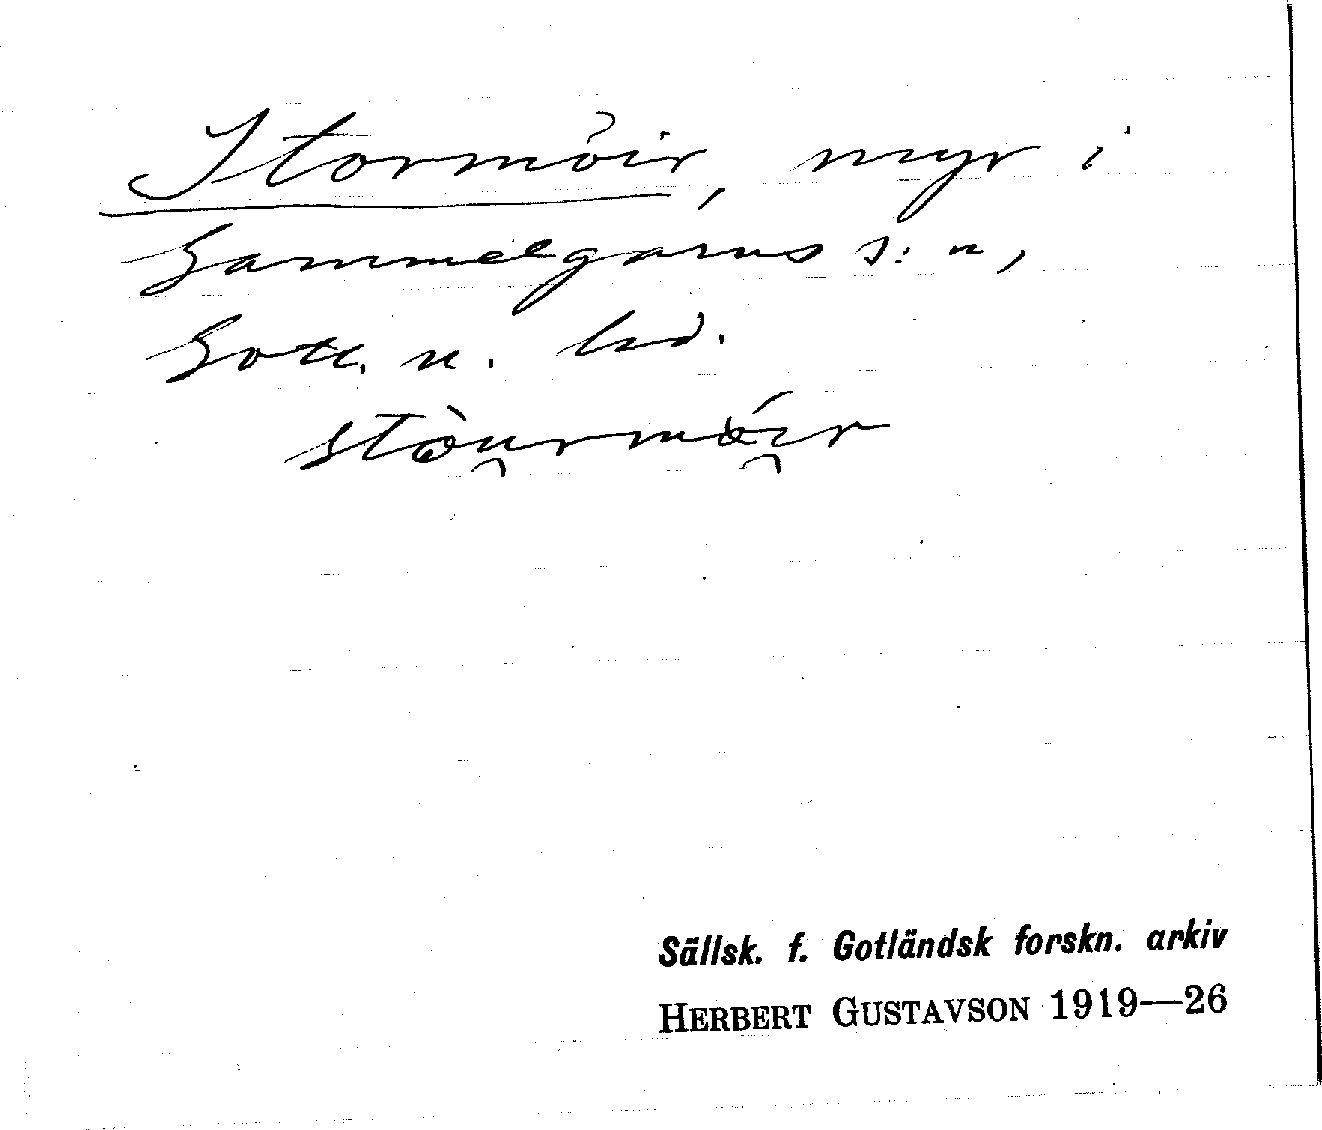 Stormöir, myr i
Gammelgarns s:n,
Gotl. n. hd.
stòu̯rmói̯r
Sällsk. f. Gotländsk forskn. arkiv
HERBERT GUSTAVSON 1919—26